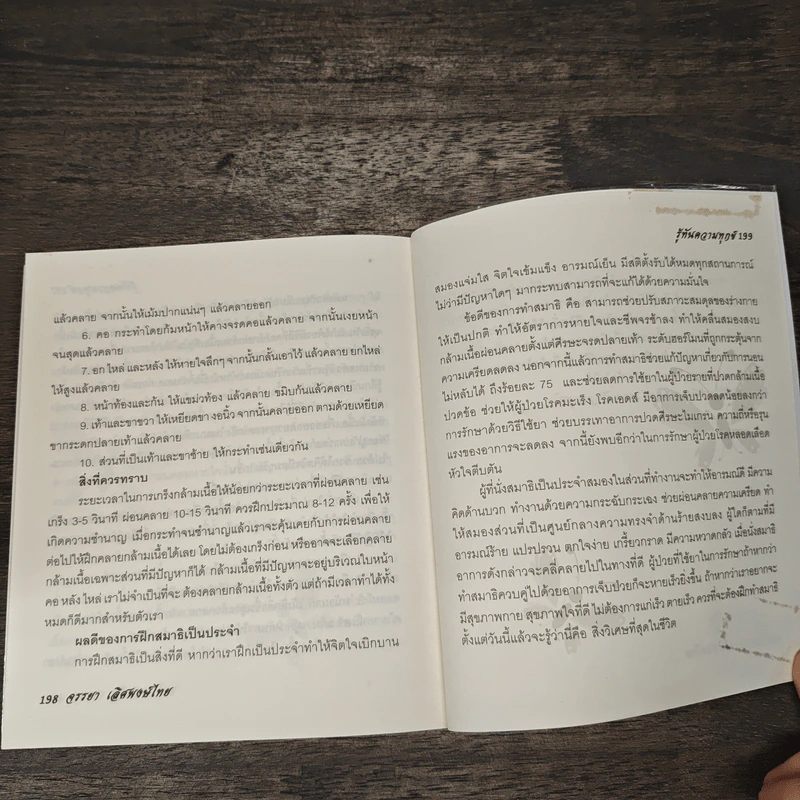 แล้วคลาย จากนั้นให้เม้มปากแน่นๆ แล้วคลายออก
6. คอ กระทำโดยก้มหน้าให้คางจรดคอแล้วคลาย จากนั้นเงยหน้า
จนสุดแล้วคลาย
7. อก ไหล่ และหลัง ให้หายใจลึกๆ จากนั้นกลั้นเอาไว้ แล้วคลาย ยกไหล่
ให้สูงแล้วคลาย
8. หน้าท้องและก้น ให้แขม่วท้อง แล้วคลาย ขมิบก้นแล้วคลาย
9. เท้าและขาขวา ให้เหยียดขา งอนิ้ว จากนั้นคลายออก ตามด้วยเหยียด
ขากระดกปลายเท้าแล้วคลาย
10. ส่วนที่เป็นเท้าและขาซ้าย ให้กระทำเช่นเดียวกัน
สิ่งที่ควรทราบ
ระยะเวลาในการเกร็งกล้ามเนื้อให้น้อยกว่าระยะเวลาที่ผ่อนคลาย เช่น
เกร็ง 3-5 วินาที ผ่อนคลาย 10-15 วินาที ควรฝึกประมาณ 8-12 ครั้ง เพื่อให้
เกิดความชำนาญ เมื่อกระทำจนชำนาญแล้วเราจะคุ้นเคยกับการผ่อนคลาย
ต่อไปให้ฝึกคลายกล้ามเนื้อได้เลย โดยไม่ต้องเกร็งก่อน หรืออาจจะเลือกคลาย
กล้ามเนื้อเฉพาะส่วนที่มีปัญหาก็ได้ กล้ามเนื้อที่มีปัญหาจะอยู่บริเวณใบหน้า
คอ หลัง ไหล่ เราไม่จำเป็นที่จะ ต้องคลายกล้ามเนื้อทั้งตัว แต่ถ้ามีเวลาทำได้ทั้ง
หมดก็ดีมากสำหรับตัวเรา
ผลดีของการฝึกสมาธิเป็นประจำ
การฝึกสมาธิเป็นสิ่งที่ดี หากว่าเราฝึกเป็นประจำทำให้จิตใจเบิกบาน
198 จรรยา เลิศพงษ์ไทย
รู้ทันความทุกข์ 199
สมองแจ่มใส จิตใจเข้มแข็ง อารมณ์เย็น มีสติตั้งรับได้หมดทุกสถานการณ์
ไม่ว่ามีปัญหาใดๆ มากระทบสามารถที่จะแก้ได้ด้วยความมั่นใจ
ข้อดีของการทำสมาธิ คือ สามารถช่วยปรับสภาวะสมดุลของร่างกาย
ให้เป็นปกติ ทำให้อัตราการหายใจและชีพจรช้าลง ทำให้คลื่นสมองสงบ
กล้ามเนื้อผ่อนคลายตั้งแต่ศีรษะจรดปลายเท้า ระดับฮอร์โมนที่ถูกกระตุ้นจาก
ความเครียดลดลง นอกจากนี้แล้วการทำสมาธิช่วยแก้ปัญหาเกี่ยวกับการนอน
ไม่หลับได้ ถึงร้อยละ 75 และช่วยลดการใช้ยาในผู้ป่วยรายที่ปวดกล้ามเนื้อ
ปวดข้อ ช่วยให้ผู้ป่วยโรคมะเร็ง โรคเอดส์ มีอาการเจ็บปวดลดน้อยลงกว่า
การรักษาด้วยวิธีใช้ยา ช่วยบรรเทาอาการปวดศีรษะไมเกรน ความถี่หรือรุน
แรงของอาการจะลดลง จากนี้ยังพบอีกว่าในการรักษาผู้ป่วยโรคหลอดเลือด
หัวใจตีบตัน
ผู้ที่นั่งสมาธิเป็นประจำสมองในส่วนที่ทำงานจะทำให้อารมณ์ดี มีความ
คิดด้านบวก ทำงานด้วยความกระฉับกระเฉง ช่วยผ่อนคลายความเครียด ทำ
ให้สมองส่วนที่เป็นศูนย์กลางความทรงจำด้านร้ายสงบลง ผู้ใดก็ตามที่มี
อารมณ์ร้าย แปรปรวน ตกใจง่าย เกรี้ยวกราด มีความหวาดกลัว เมื่อนั่งสมาธิ
อาการดังกล่าวจะคลี่คลายไปในทางที่ดี ผู้ป่วยที่ใช้ยาในการรักษาถ้าหากว่า
ทำสมาธิควบคู่ไปด้วยอาการเจ็บป่วยก็จะหายเร็วยิ่งขึ้น ถ้าหากว่าเราอยากจะ
มีสุขภาพกาย สุขภาพใจที่ดี ไม่ต้องการแก่เร็ว ตายเร็ว ควรที่จะต้องฝึกทำสมาธิ
ตั้งแต่วันนี้แล้วจะรู้ว่านี่คือ สิ่งวิเศษที่สุดในชีวิต